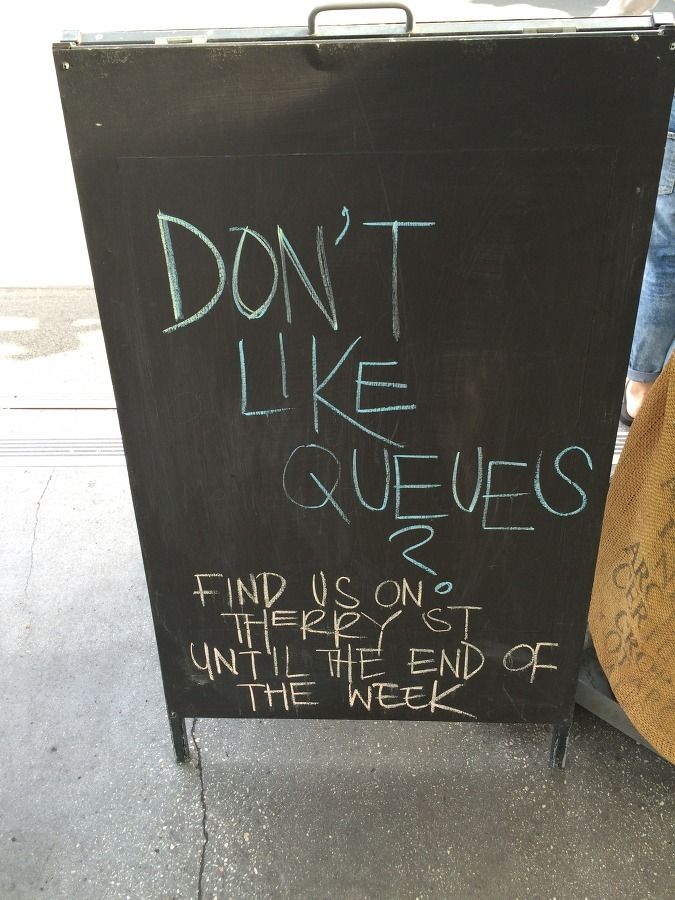 DON'T
LIKE
QUEUES
?
FIND US ON
THERRY ST
UNTIL THE END OF
THE WEEK